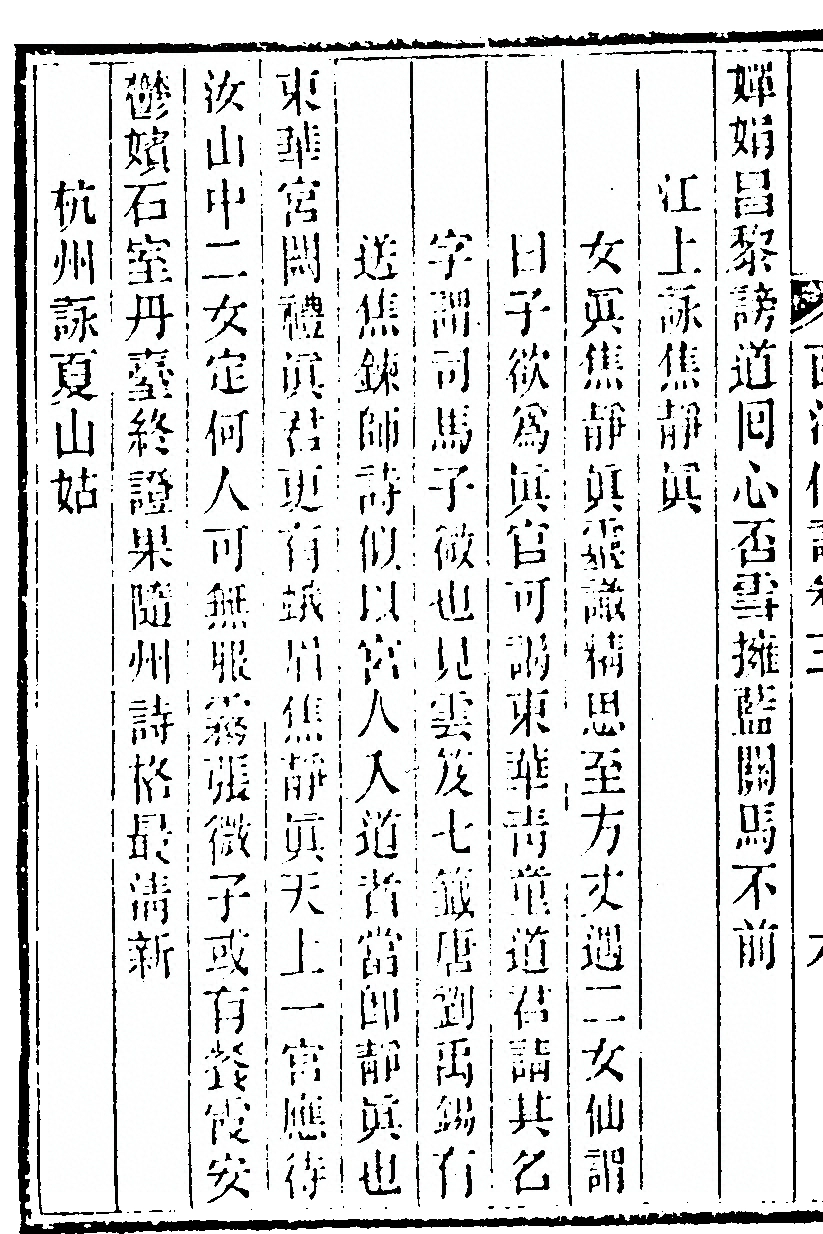 嬋娟昌黎謗道回心否雪擁藍關馬不前
江上詠焦靜眞
女眞焦靜眞靈識精思至方丈遇二女仙謂
曰子欲爲眞官可謁東華靑童道君請其名
字謂司馬子微也見雲笈七籤唐劉禹錫有
送焦鍊師詩似以宮人入道者當卽靜眞也
東華宮闕禮眞君更有蛾眉焦靜眞天上一官應待
汝山中二女定何人可無服霧張微子或有餐霞安
鬱嬪石室丹臺終證果隨州詩格最淸新
杭州詠夏山姑